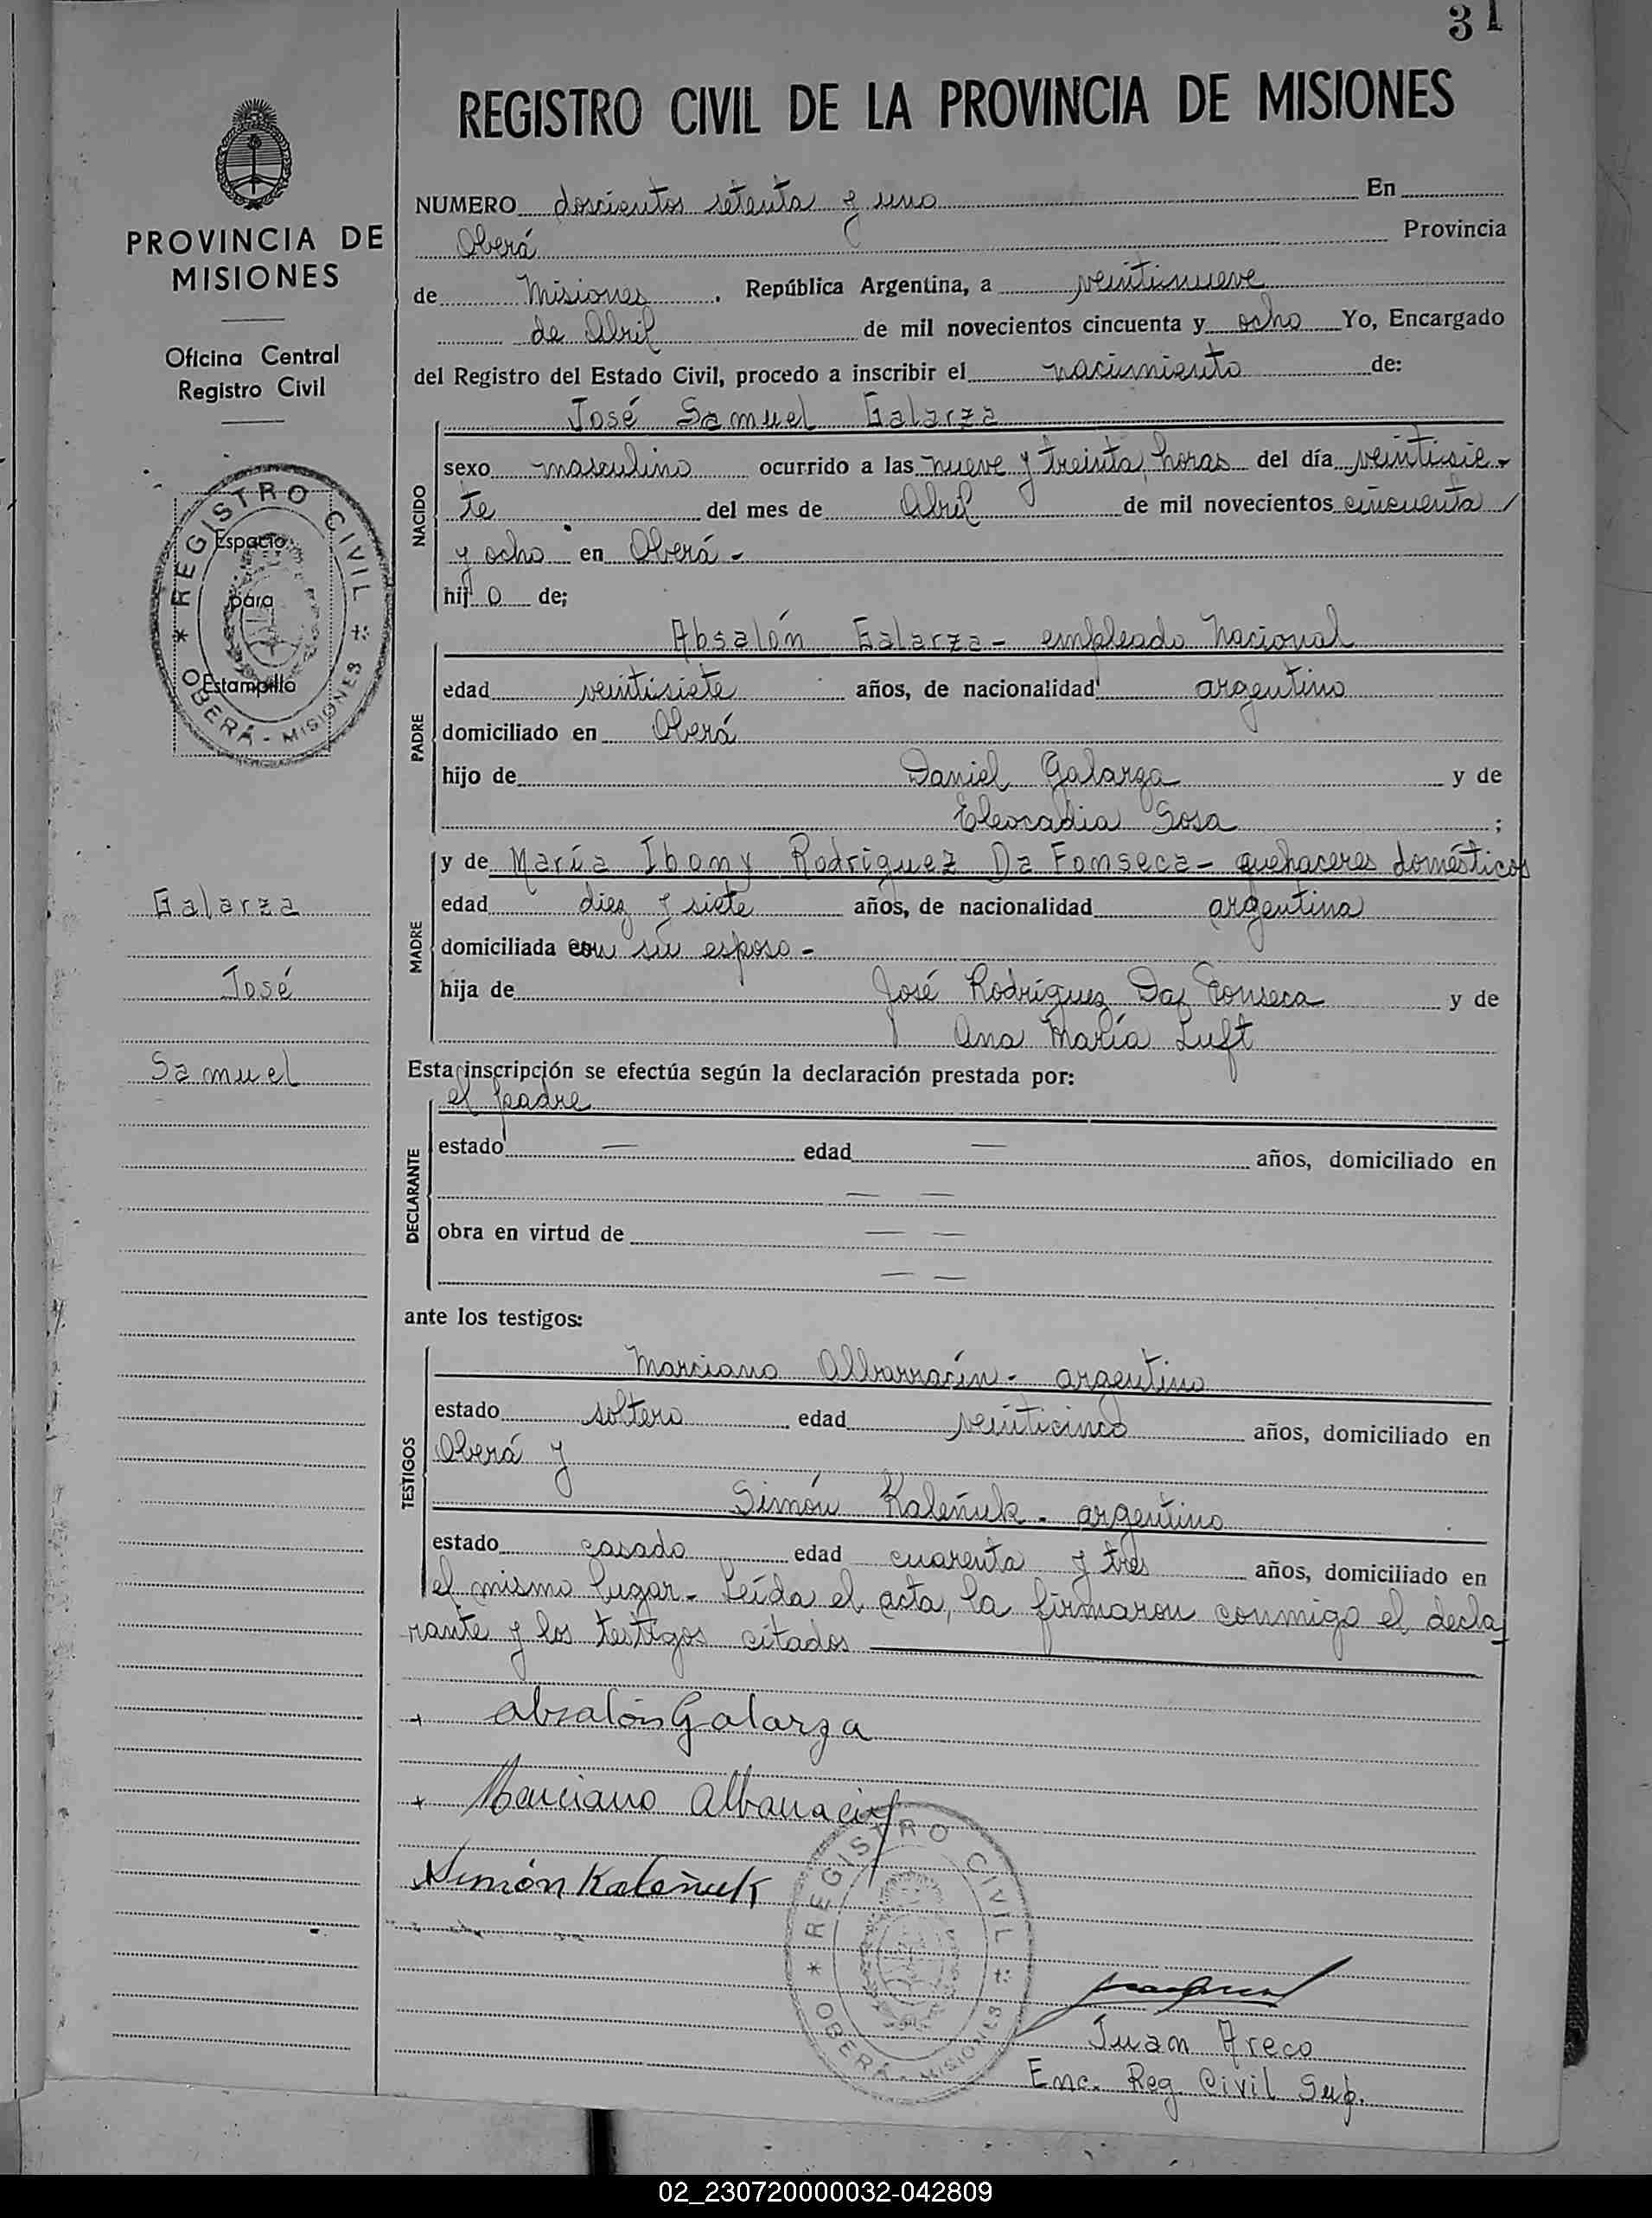 31
REGISTRO CIVIL DE LA PROVINCIA DE MISIONES
PROVINCIA DE
MISIONES
Oficina Central
Registro Civil
REGISTRO CIVIL
OBERÁ - MISIONES
Espacio
para
Estampilla
Galarza
José
Samuel
NUMERO doscientos setenta y uno En
Oberá Provincia
de Misiones, República Argentina, a veintinueve
de Abril de mil novecientos cincuenta y ocho Yo, Encargado
del Registro del Estado Civil, procedo a inscribir el nacimiento de:
José Samuel Galarza
NACIDO
sexo masculino ocurrido a las nueve y treinta horas del día veintisie-
te del mes de Abril de mil novecientos cincuenta
y ocho en Oberá -
hijo de;
Absalón Galarza - empleado Nacional
PADRE
edad veintisiete años, de nacionalidad argentino
domiciliado en Oberá
hijo de Daniel Galarza y de
Eleocadia Sosa ;
y de María Ibony Rodriguez Da Fonseca - quehaceres domésticos
MADRE
edad diez y siete años, de nacionalidad argentina
domiciliada con su esposo -
hija de José Rodríguez Da Fonseca y de
Ana María Luft
Esta inscripción se efectúa según la declaración prestada por:
el padre
DECLARANTE
estado — edad — años, domiciliado en
— —
obra en virtud de — —
— —
ante los testigos:
TESTIGOS
Marciano Albarracín - argentino
estado soltero edad veinticinco años, domiciliado en
Oberá y
Simón Kaleñuk - argentino
estado casado edad cuarenta y tres años, domiciliado en
el mismo lugar - Leída el acta, la firmaron conmigo el decla-
rante y los testigos citados
+ Absalón Galarza
+ Marciano Albarracín
Simón Kaleñuk
REGISTRO CIVIL
OBERÁ - MISIONES
Juan Areco
Enc. Reg. Civil Sup.
02_230720000032-042809